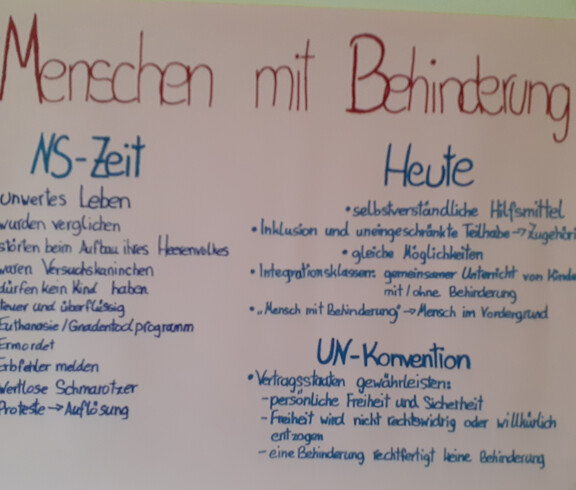 Menschen mit Behinderung
NS-Zeit
unwertes Leben
wurden verglichen
störten beim Aufbau ihres Herrenvolkes
waren Versuchskaninchen
dürfen kein Kind haben
teuer und überflüssig
Euthanasie/Gnadentodprogramm
Ermordet
Erbfehler melden
Wertlose Schmarotzer
Proteste → Auflösung
Heute
• selbstverständliche Hilfsmittel
• Inklusion und uneingeschränkte Teilhabe →
• gleiche Möglichkeiten
• Integrationsklassen: gemeinsamer Unterricht von
mit/ohne Behinderung
• „Mensch mit Behinderung" → Mensch im Vordergrund
UN-Konvention
• Vertragsstaaten gewährleisten:
- persönliche Freiheit und Sicherheit
- Freiheit wird nicht rechtswidrig oder willkürlich
entzogen
- eine Behinderung rechtfertigt keine Behinderung